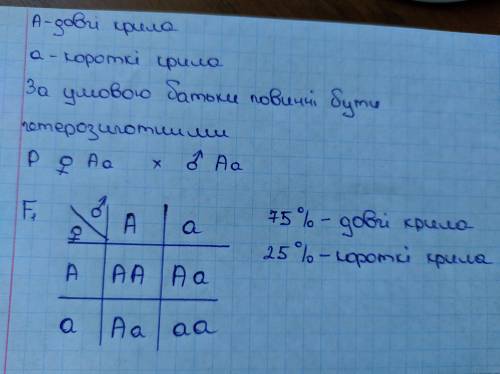 А-довгі крила
а-короткі крила
За умовою батьки повинні бути
гетерозиготними
Р ♀ Аа × ♂ Аа
F₁ ♀ ♂ А а
А АА Аа
а Аа аа
75% - довгі крила
25% - короткі крила